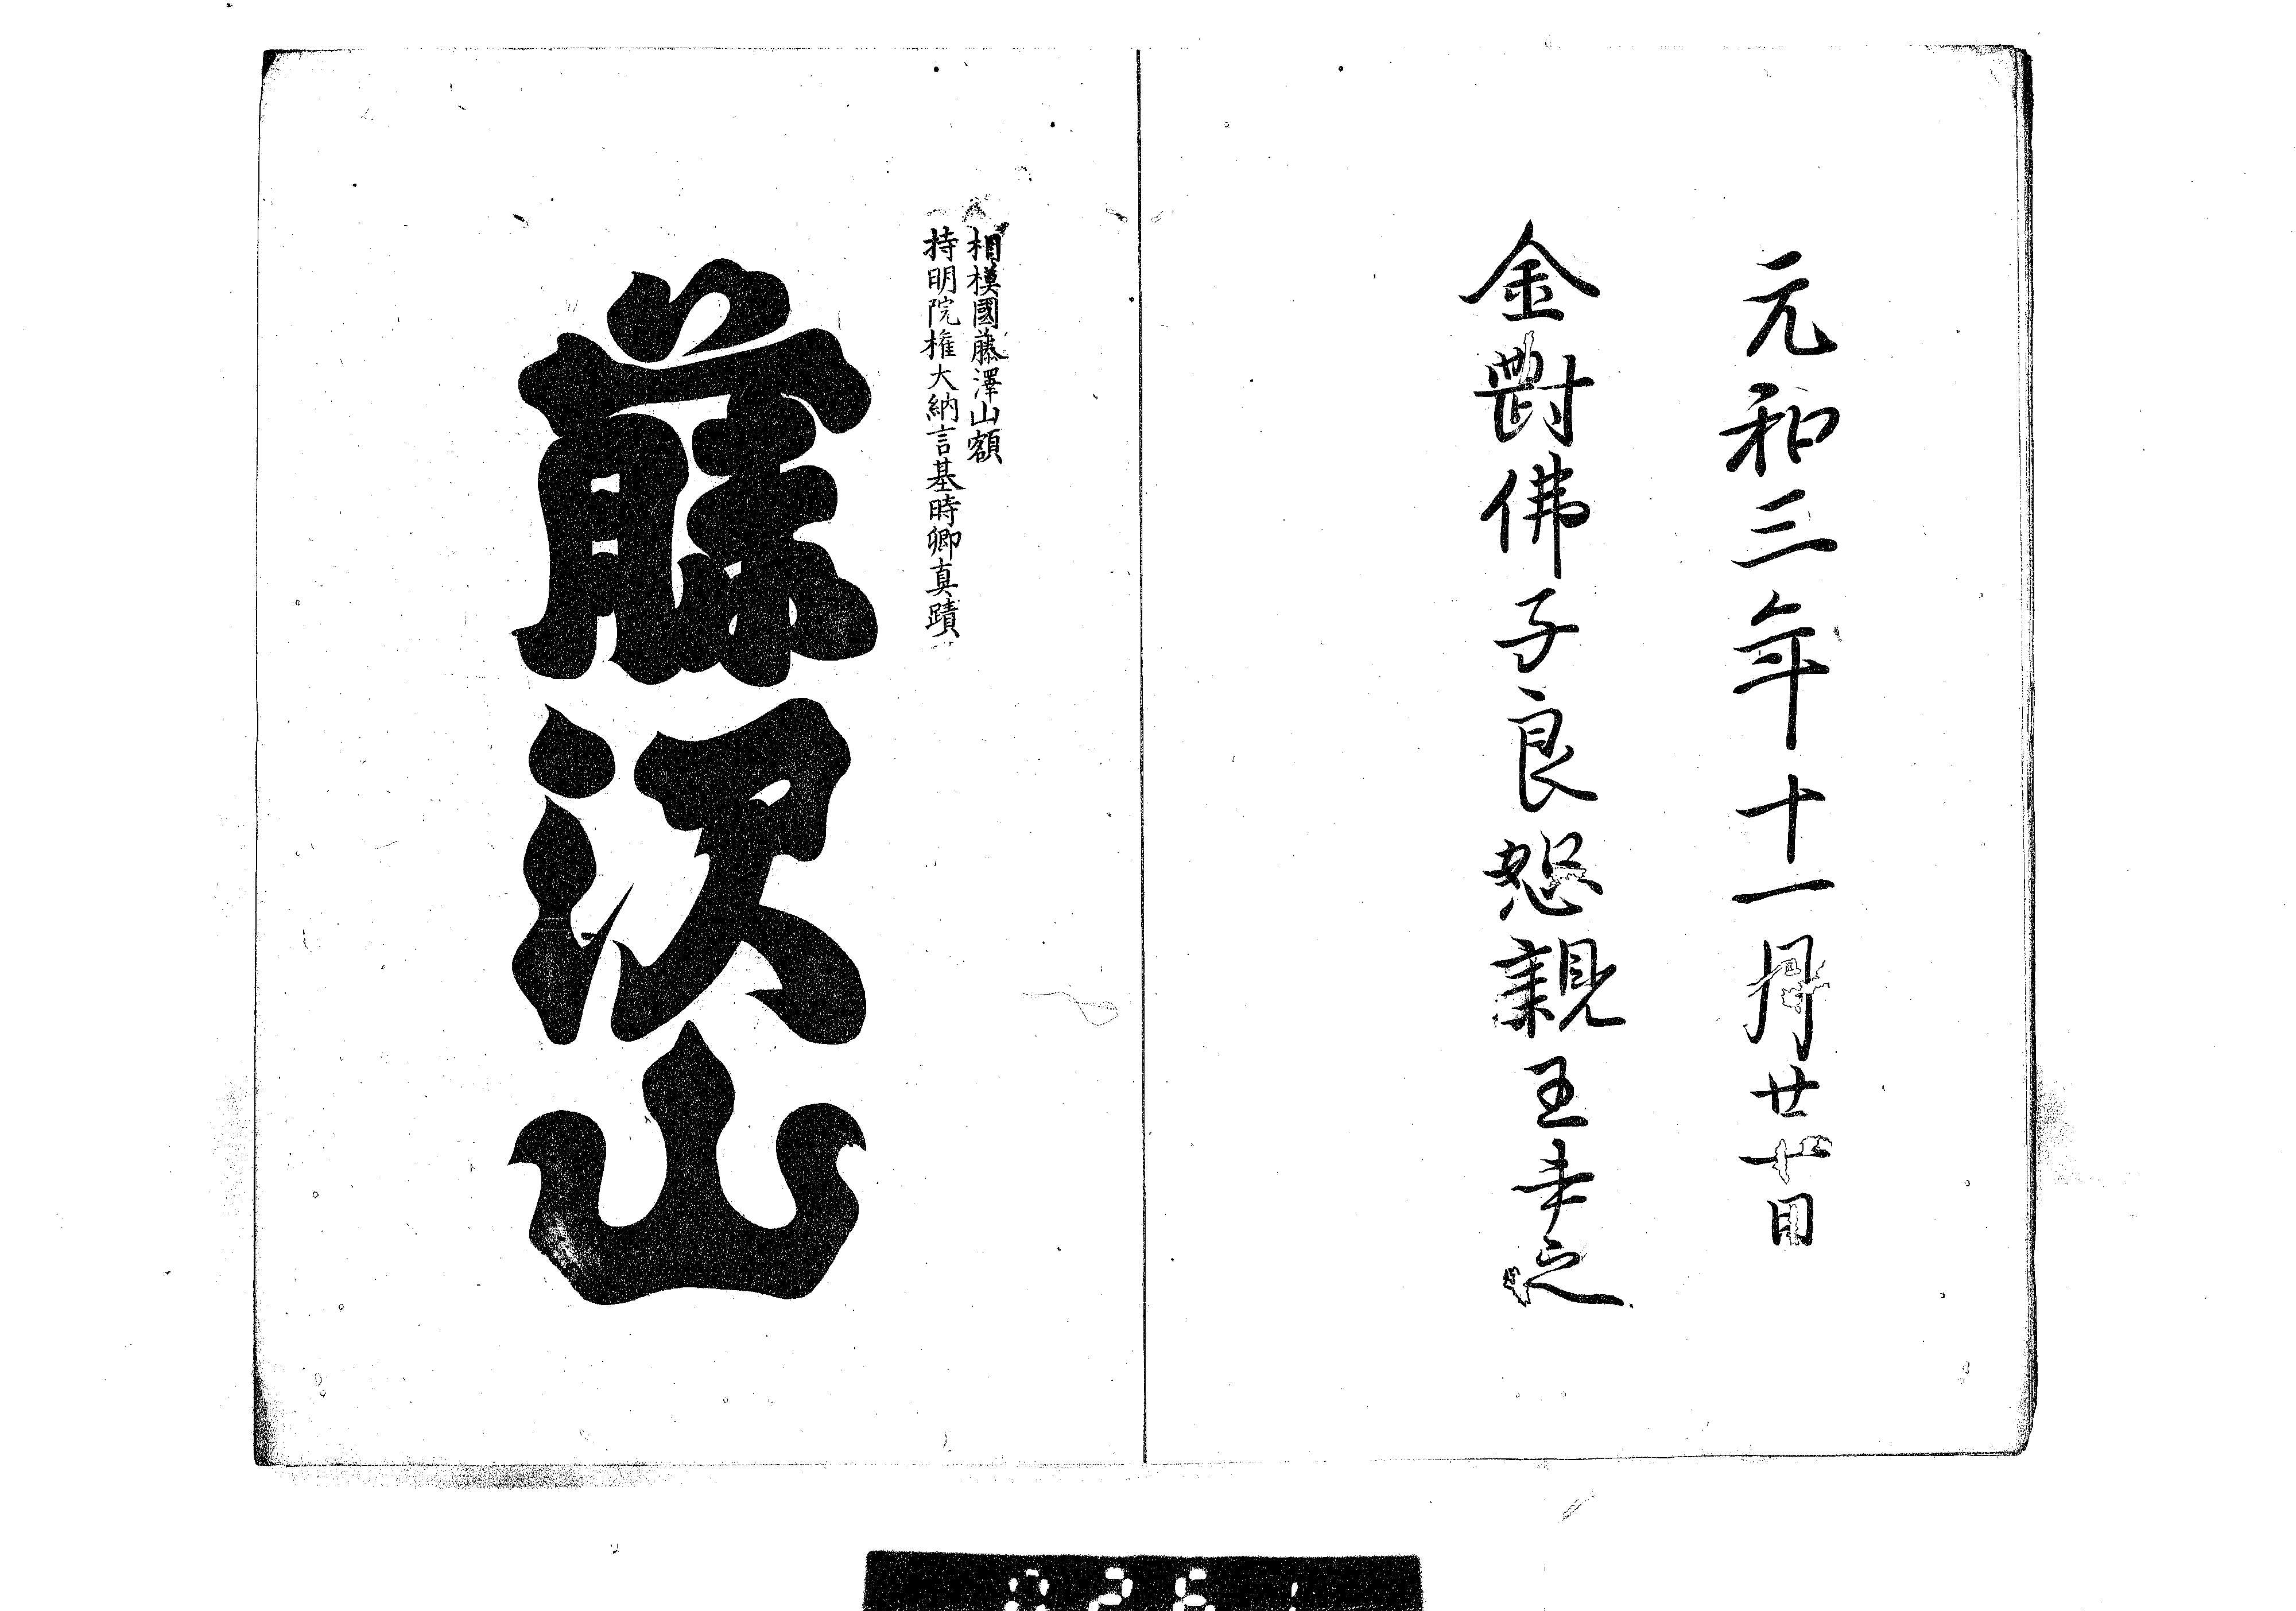 元和三年十一月廿日
金剛佛子良恕親王書之
相模國藤澤山額
持明院権大納言基時卿真蹟
藤沢山